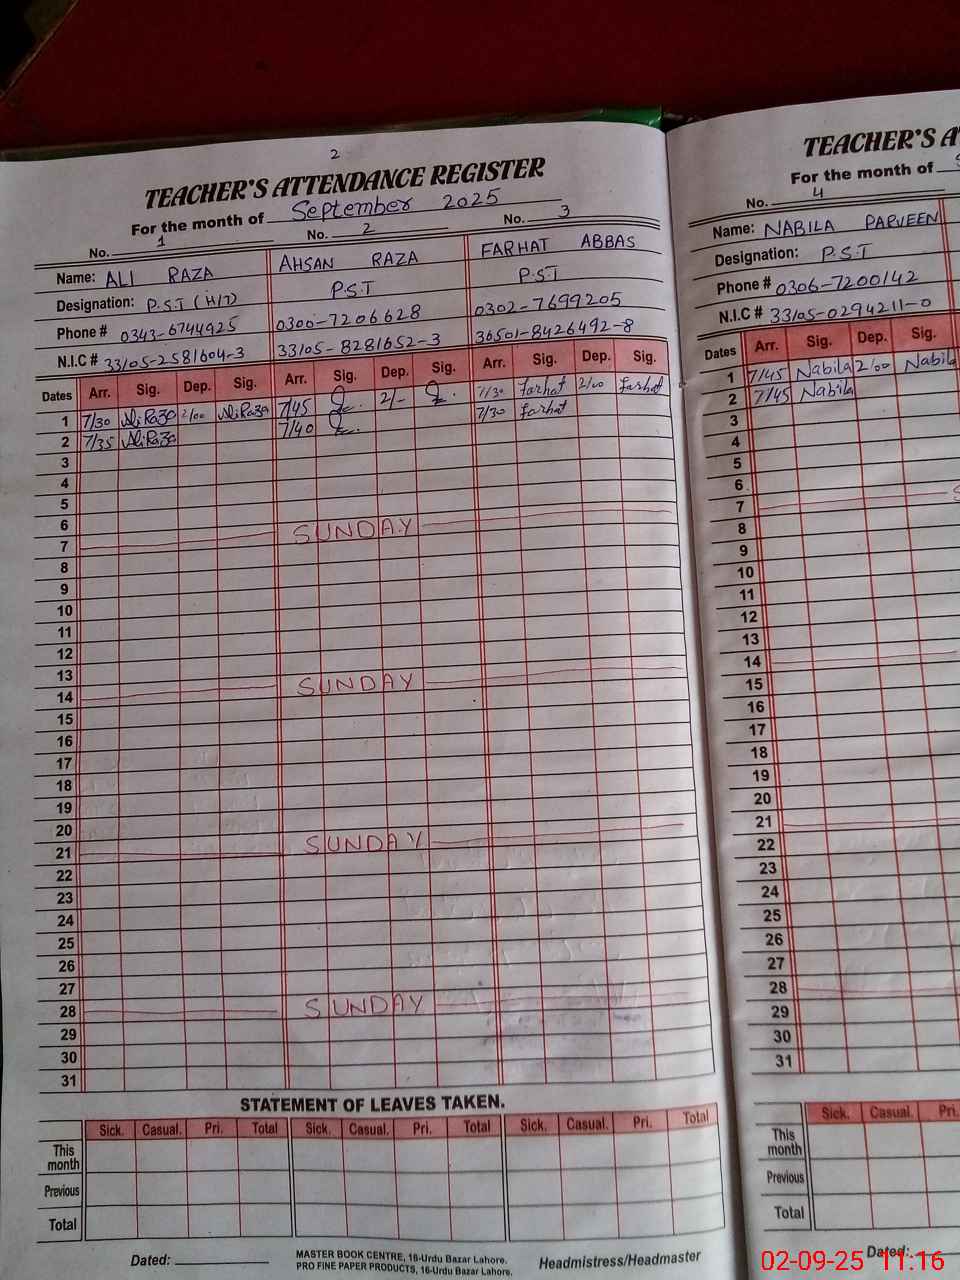 2
TEACHER'S ATTENDANCE REGISTER
For the month of September 2025
No. 1 No. 2 No. 3
Name: ALI RAZA AHSAN RAZA FARHAT ABBAS
Designation: P.S.T (H/T) P.S.T P.S.T
Phone # 0343-6744925 0306-7206628 0302-7699205
N.I.C # 33105-2581604-3 33105-8281652-3 36501-8426492-8
Dates Arr. Sig. Dep. Sig. Arr. Sig. Dep. Sig. Arr. Sig. Dep. Sig.
1 7/30 Ali Raza 2/00 Ali Raza 7/45 2/- 7/30 Farhat 2/00 Farhat
2 7/35 Ali Raza 7/40 7/30 Farhat
3
4
5
6
7 SUNDAY
8
9
10
11
12
13
14 SUNDAY
15
16
17
18
19
20
21 SUNDAY
22
23
24
25
26
27
28 SUNDAY
29
30
31
STATEMENT OF LEAVES TAKEN.
Sick. Casual. Pri. Total Sick. Casual. Pri. Total Sick. Casual. Pri. Total
This month
Previous
Total
Dated: MASTER BOOK CENTRE, 16-Urdu Bazar Lahore. Headmistress/Headmaster
PRO FINE PAPER PRODUCTS, 16-Urdu Bazar Lahore.
TEACHER'S A
For the month of S
No. 4
Name: NABILA PARVEEN
Designation: P.S.T
Phone # 0306-7200142
N.I.C # 33105-0294211-0
Dates Arr. Sig. Dep. Sig.
1 7/45 Nabila 2/00 Nabila
2 7/45 Nabila
3
4
5
6
7 S
8
9
10
11
12
13
14
15
16
17
18
19
20
21
22
23
24
25
26
27
28
29
30
31
Sick. Casual. Pri.
This month
Previous
Total
Dated:
02-09-25 11:16